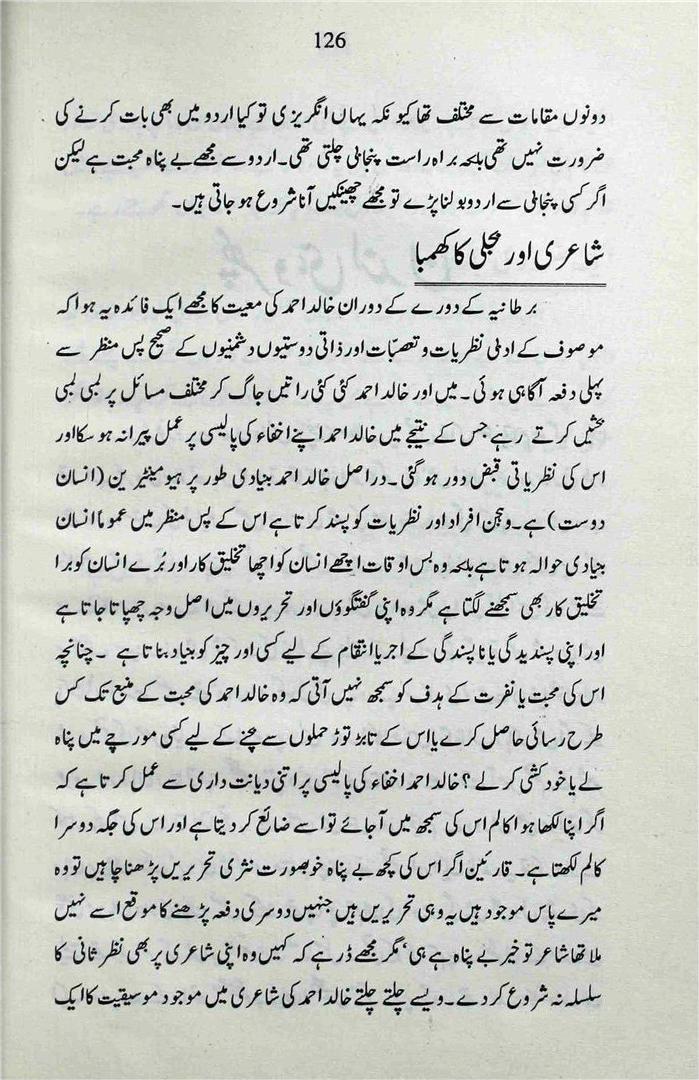 126
دونوں مقامات سے مختلف تھا کیونکہ یہاں انگریزی تو کیا اردو میں بھی بات کرنے کی
ضرورت نہیں تھی بلکہ براہ راست پنجابی چلتی تھی۔ اردو سے مجھے بے پناہ محبت ہے لیکن
اگر کسی پنجابی سے اردو بولنا پڑے تو مجھے چھینکیں آنا شروع ہو جاتی ہیں۔
شاعری اور بجلی کا کھمبا
برطانیہ کے دورے کے دوران خالد احمد کی معیت کا مجھے ایک فائدہ یہ ہوا کہ
موصوف کے ادبی نظریات و تعصبّات اور ذاتی دوستیوں دشمنیوں کے صحیح پس منظر سے
پہلی دفعہ آگاہی ہوئی۔ میں اور خالد احمد کئی کئی راتیں جاگ کر مختلف مسائل پر لمبی لمبی
بحثیں کرتے رہے جس کے نتیجے میں خالد احمد اپنے اخفاء کی پالیسی پر عمل پیرا نہ ہو سکا اور
اس کی نظریاتی قبض دور ہو گئی۔ دراصل خالد احمد بنیادی طور پر ہیومینٹیرین (انسان
دوست) ہے۔ وہ جن افراد اور نظریات کو پسند کرتا ہے اس کے پس منظر میں عموماً انسان
بنیادی حوالہ ہوتا ہے بلکہ وہ بس اوقات اچھے انسان کو اچھا تخلیق کار اور بُرے انسان کو برا
تخلیق کار بھی سمجھنے لگتا ہے مگر وہ اپنی گفتگوؤں اور تحریروں میں اصل وجہ چھپاتا جاتا ہے
اور اپنی پسندیدگی یا ناپسندگی کے اجر یا انتقام کے لیے کسی اور چیز کو بنیاد بناتا ہے ۔ چنانچہ
اس کی محبت یا نفرت کے ہدف کو سمجھ نہیں آتی کہ وہ خالد احمد کی محبت کے منبع تک کس
طرح رسائی حاصل کرے یا اس کے تابڑ توڑ حملوں سے بچنے کے لیے کسی مورچے میں پناہ
لے یا خود کشی کر لے ؟ خالد احمد اخفاء کی پالیسی پر اتنی دیانت داری سے عمل کرتا ہے کہ
اگر اپنا لکھا ہوا کالم اس کی سمجھ میں آ جائے تو اسے ضائع کر دیتا ہے اور اس کی جگہ دوسرا
کالم لکھتا ہے۔ قارئین اگر اس کی کچھ بے پناہ خوبصورت نثری تحریریں پڑھنا چاہیں تو وہ
میرے پاس موجود ہیں یہ وہی تحریریں ہیں جنہیں دوسری دفعہ پڑھنے کا موقع اسے نہیں
ملا تھا شاعر تو خیر بے پناہ ہے ہی، مگر مجھے ڈر ہے کہ کہیں وہ اپنی شاعری پر بھی نظر ثانی کا
سلسلہ نہ شروع کر دے۔ ویسے چلتے چلتے خالد احمد کی شاعری میں موجود موسیقیت کا ایک